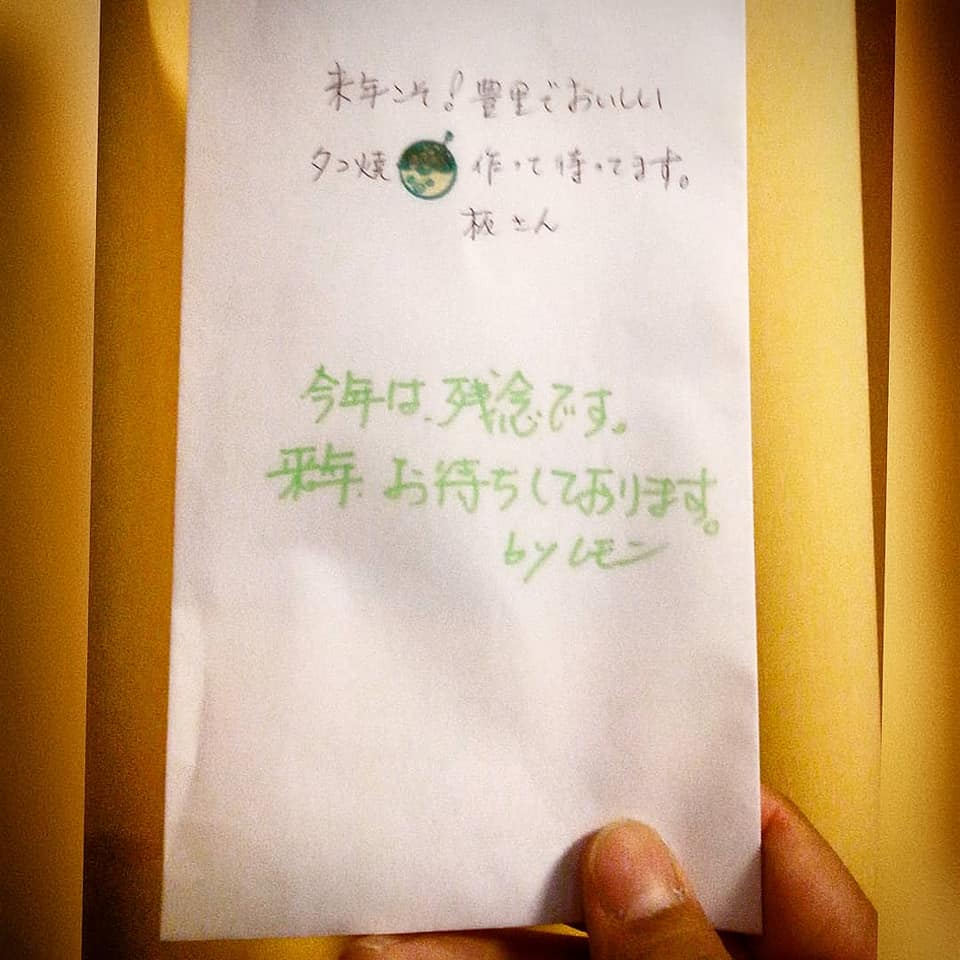 来年こそ!豊里でおいしい
タコ焼 作って待ってます。
板さん
今年は、残念です。
来年、お待ちしております。
byレモン